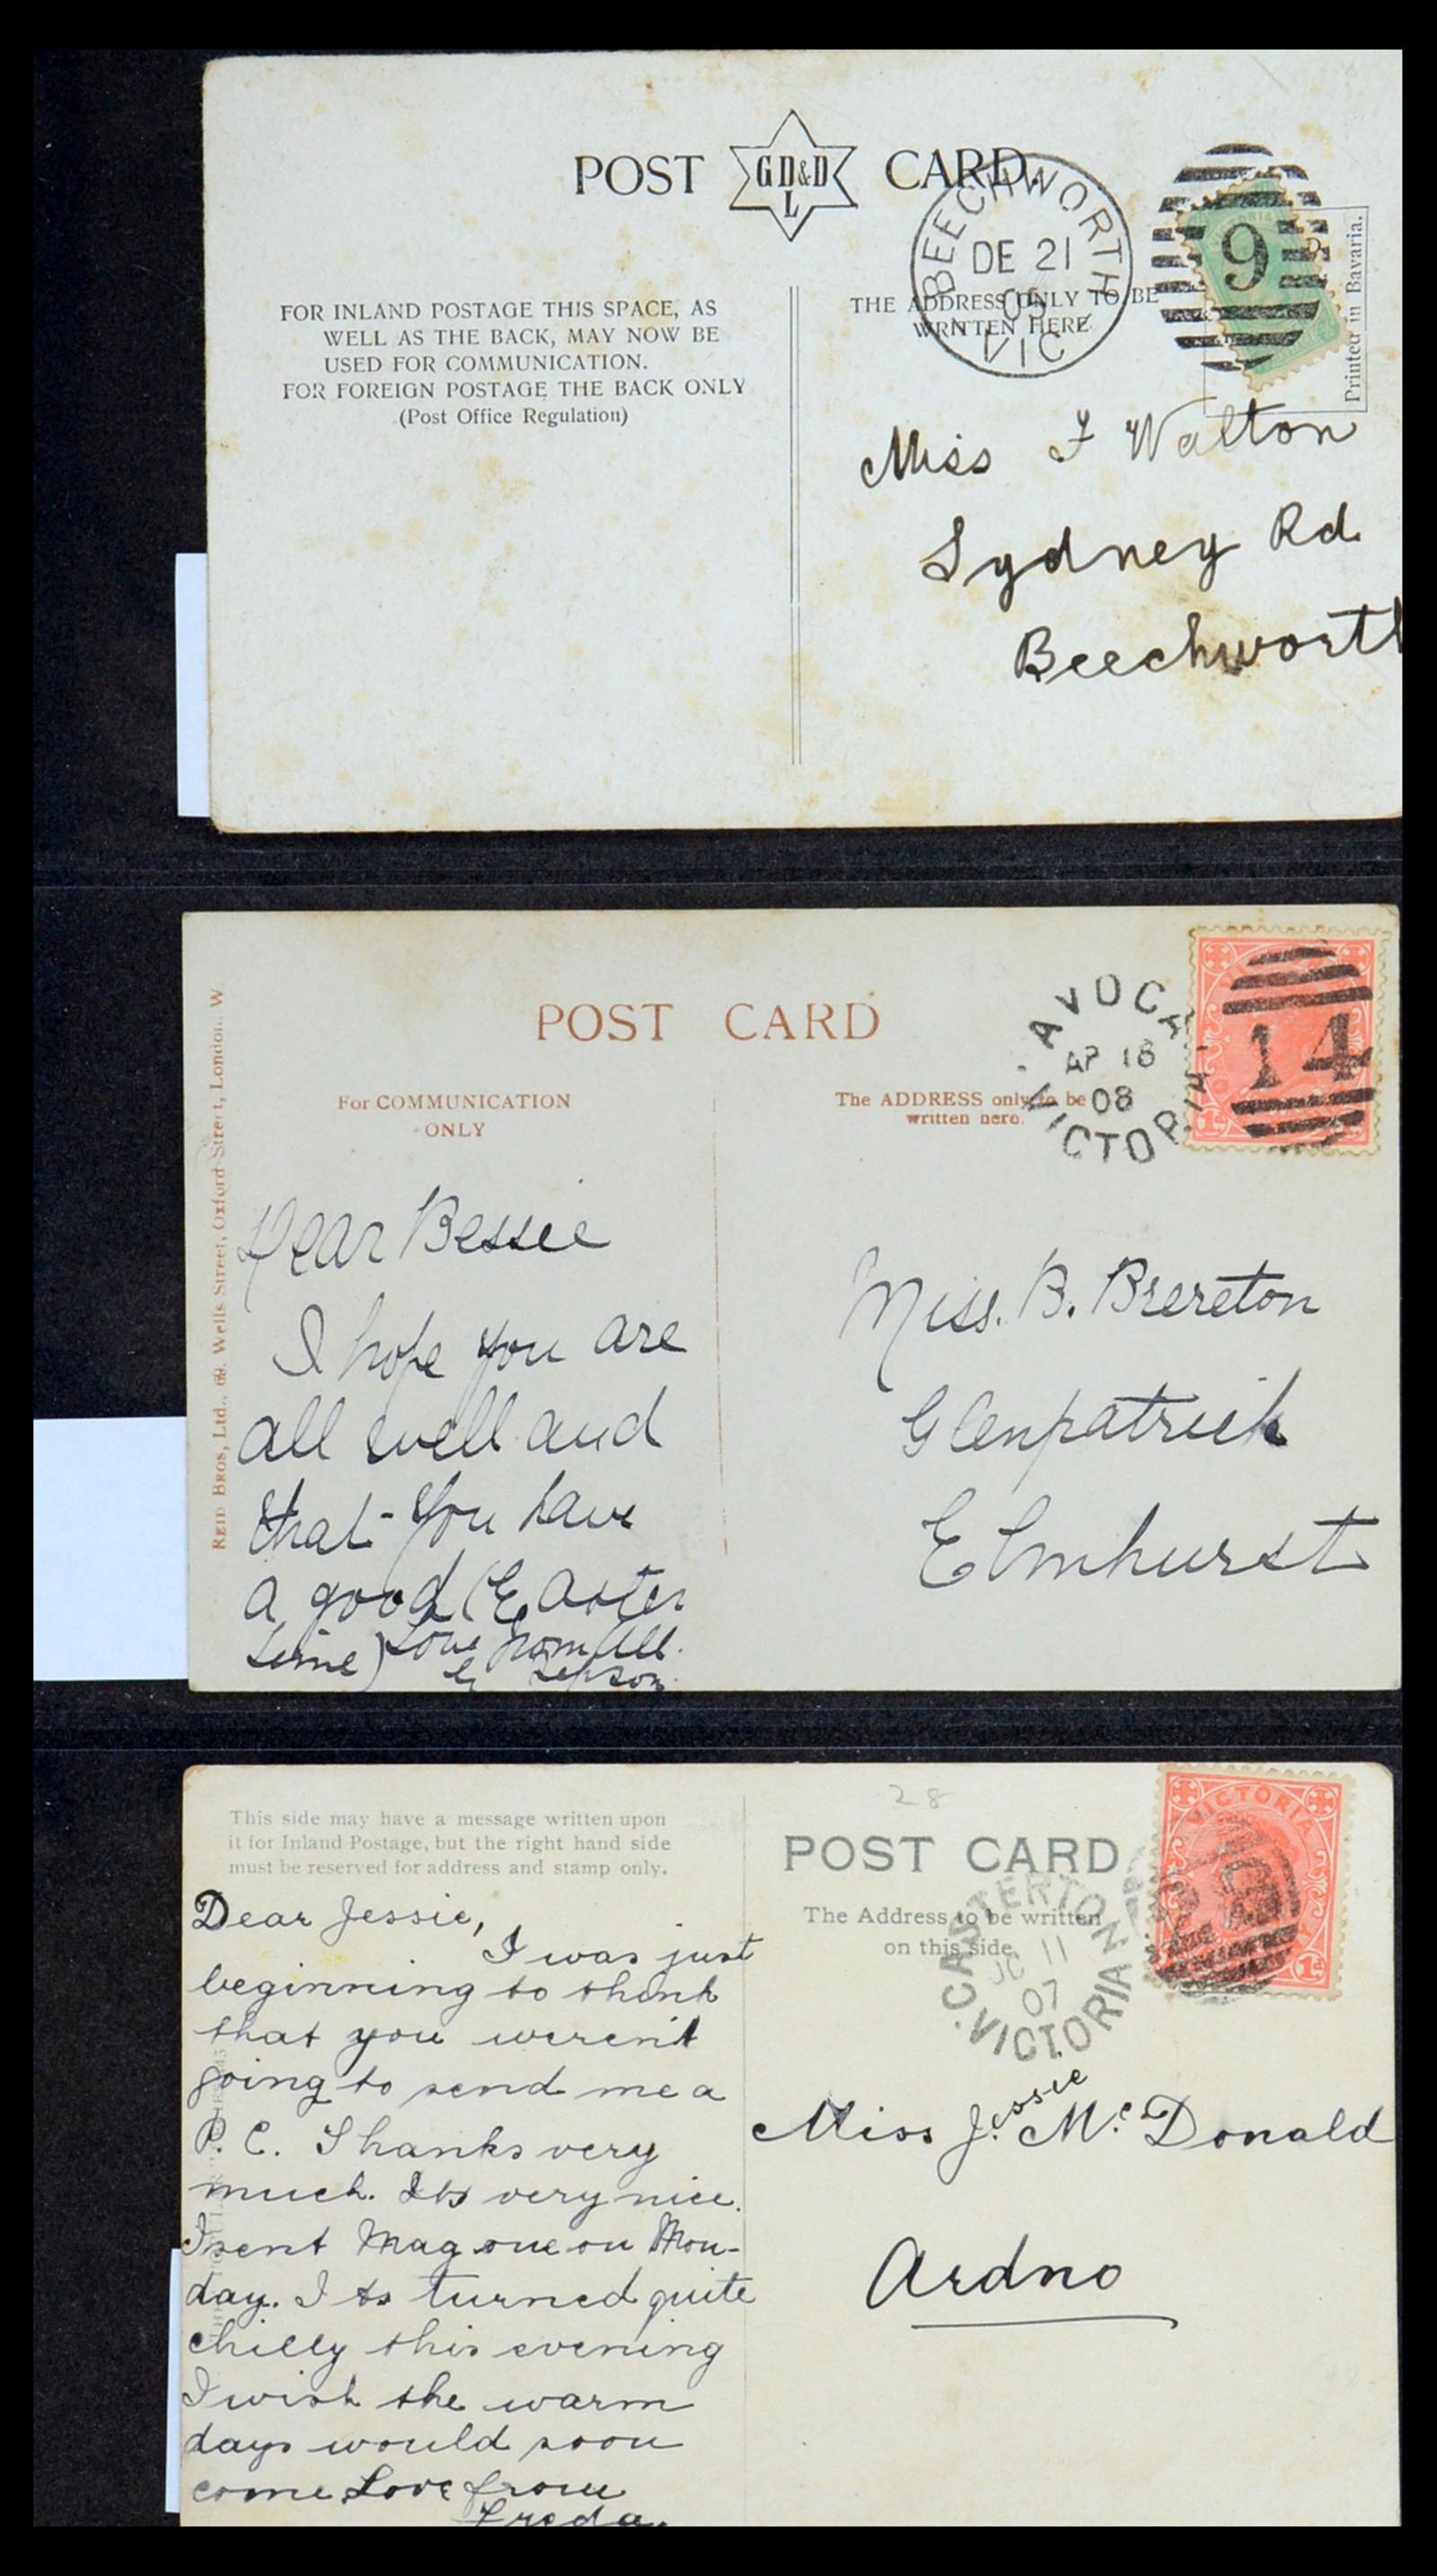 POST GD&D L CARD.
BEECHWORTH
DE 21
05
VIC
9
Printed in Bavaria.
FOR INLAND POSTAGE THIS SPACE, AS
WELL AS THE BACK, MAY NOW BE
USED FOR COMMUNICATION.
FOR FOREIGN POSTAGE THE BACK ONLY
(Post Office Regulation)
THE ADDRESS ONLY TO BE
WRITTEN HERE
Miss F Walton
Sydney Rd
Beechworth
POST CARD
AVOCA
AP 18
08
VICTORIA
14
1D
For COMMUNICATION
ONLY
The ADDRESS only to be
written here.
REID BROS, Ltd., 69, Wells Street, Oxford Street, London. W
Dear Bessie
I hope you are
all well and
that you have
a good (Easter
time) Love from all.
Miss. B. Brereton
Glenpatrick
Elmhurst
28
This side may have a message written upon
it for Inland Postage, but the right hand side
must be reserved for address and stamp only.
POST CARD
The Address to be written
on this side.
CASTERTON
11
07
VICTORIA
VICTORIA
1D
Dear Jessie,
I was just
beginning to think
that you weren't
going to send me a
P. C. Thanks very
much. Its very nice.
I sent Mag one on Mon-
day. Its turned quite
chilly this evening
I wish the warm
days would soon
come Love from
Freda.
Miss J. Mc Donald
Jessie
Ardno